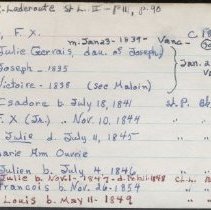 Laderoute St L. II - P 111, p. 90
F. X. m. Jan 23 - 1839 - Vanc
Julie (Gervais, dau. of Joseph)
Joseph - 1835
Victoire - 1838 (see Maloin)
Isadore b. July 18, 1841 St. P.
F. X. (Jr.) Nov. 10, 1844
Julie d. July 11, 1845
Marie Ann Ouvrie
Julien b. July 4, 1846
Julie b. Nov. 1 - 1847 - d. 1848
Francois b. Nov. 26 - 1854
Louis b. May 11 - 1849